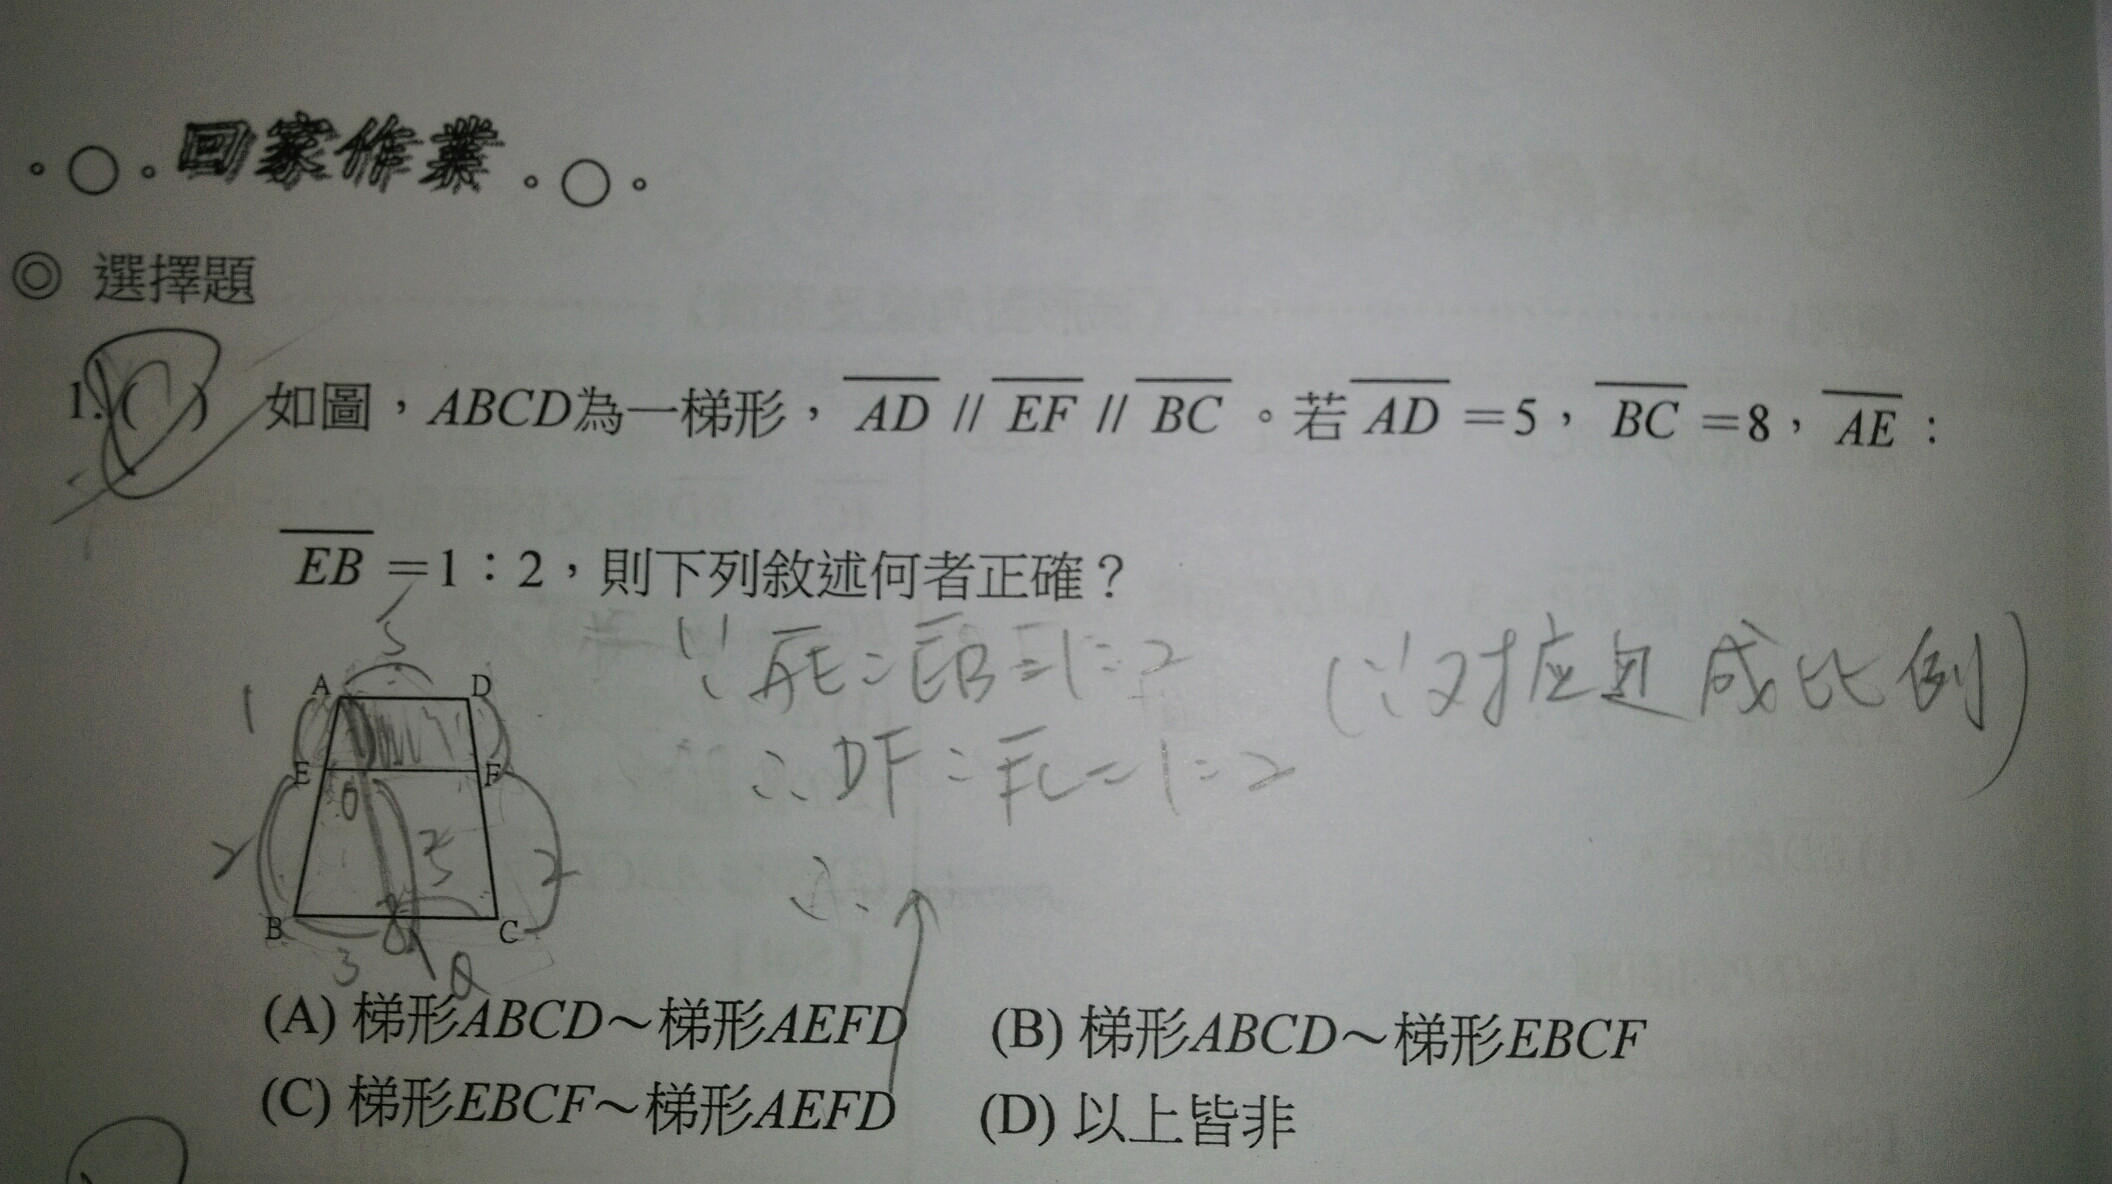 回家作業
◎ 選擇題
1. ( ) 如圖，ABCD為一梯形，AD // EF // BC。若AD=5，BC=8，AE：
EB=1：2，則下列敘述何者正確？
5
∵ AE:EB=1:2 (∵对应边成比例)
∴ DF:FC=1:2
1
A D
E F
2 5 2
B 8 C
3
(A) 梯形ABCD～梯形AEFD (B) 梯形ABCD～梯形EBCF
(C) 梯形EBCF～梯形AEFD (D) 以上皆非